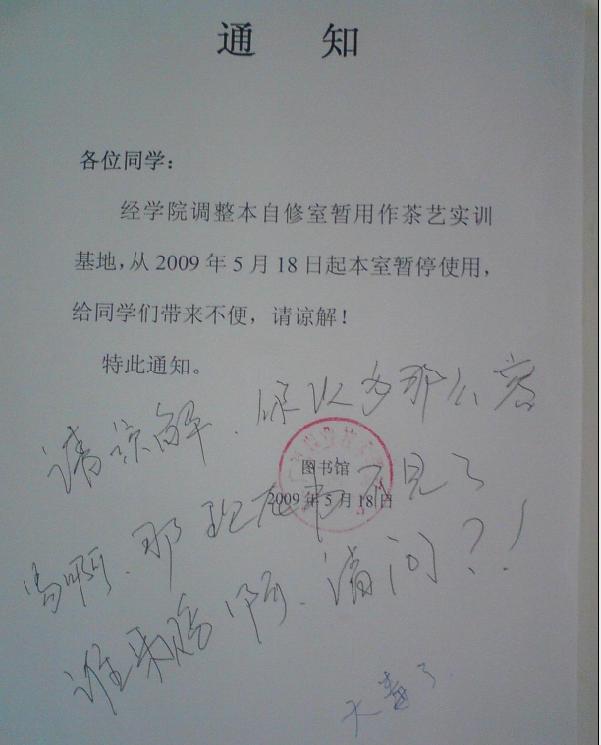 通 知
各位同学：
经学院调整本自修室暂用作茶艺实训
基地，从 2009 年 5 月 18 日起本室暂停使用，
给同学们带来不便，请谅解！
特此通知。
图书馆
2009 年 5 月 18 日
请谅解、你以为那么容
易啊、那现在书不见了
谁来赔啊、请问？！